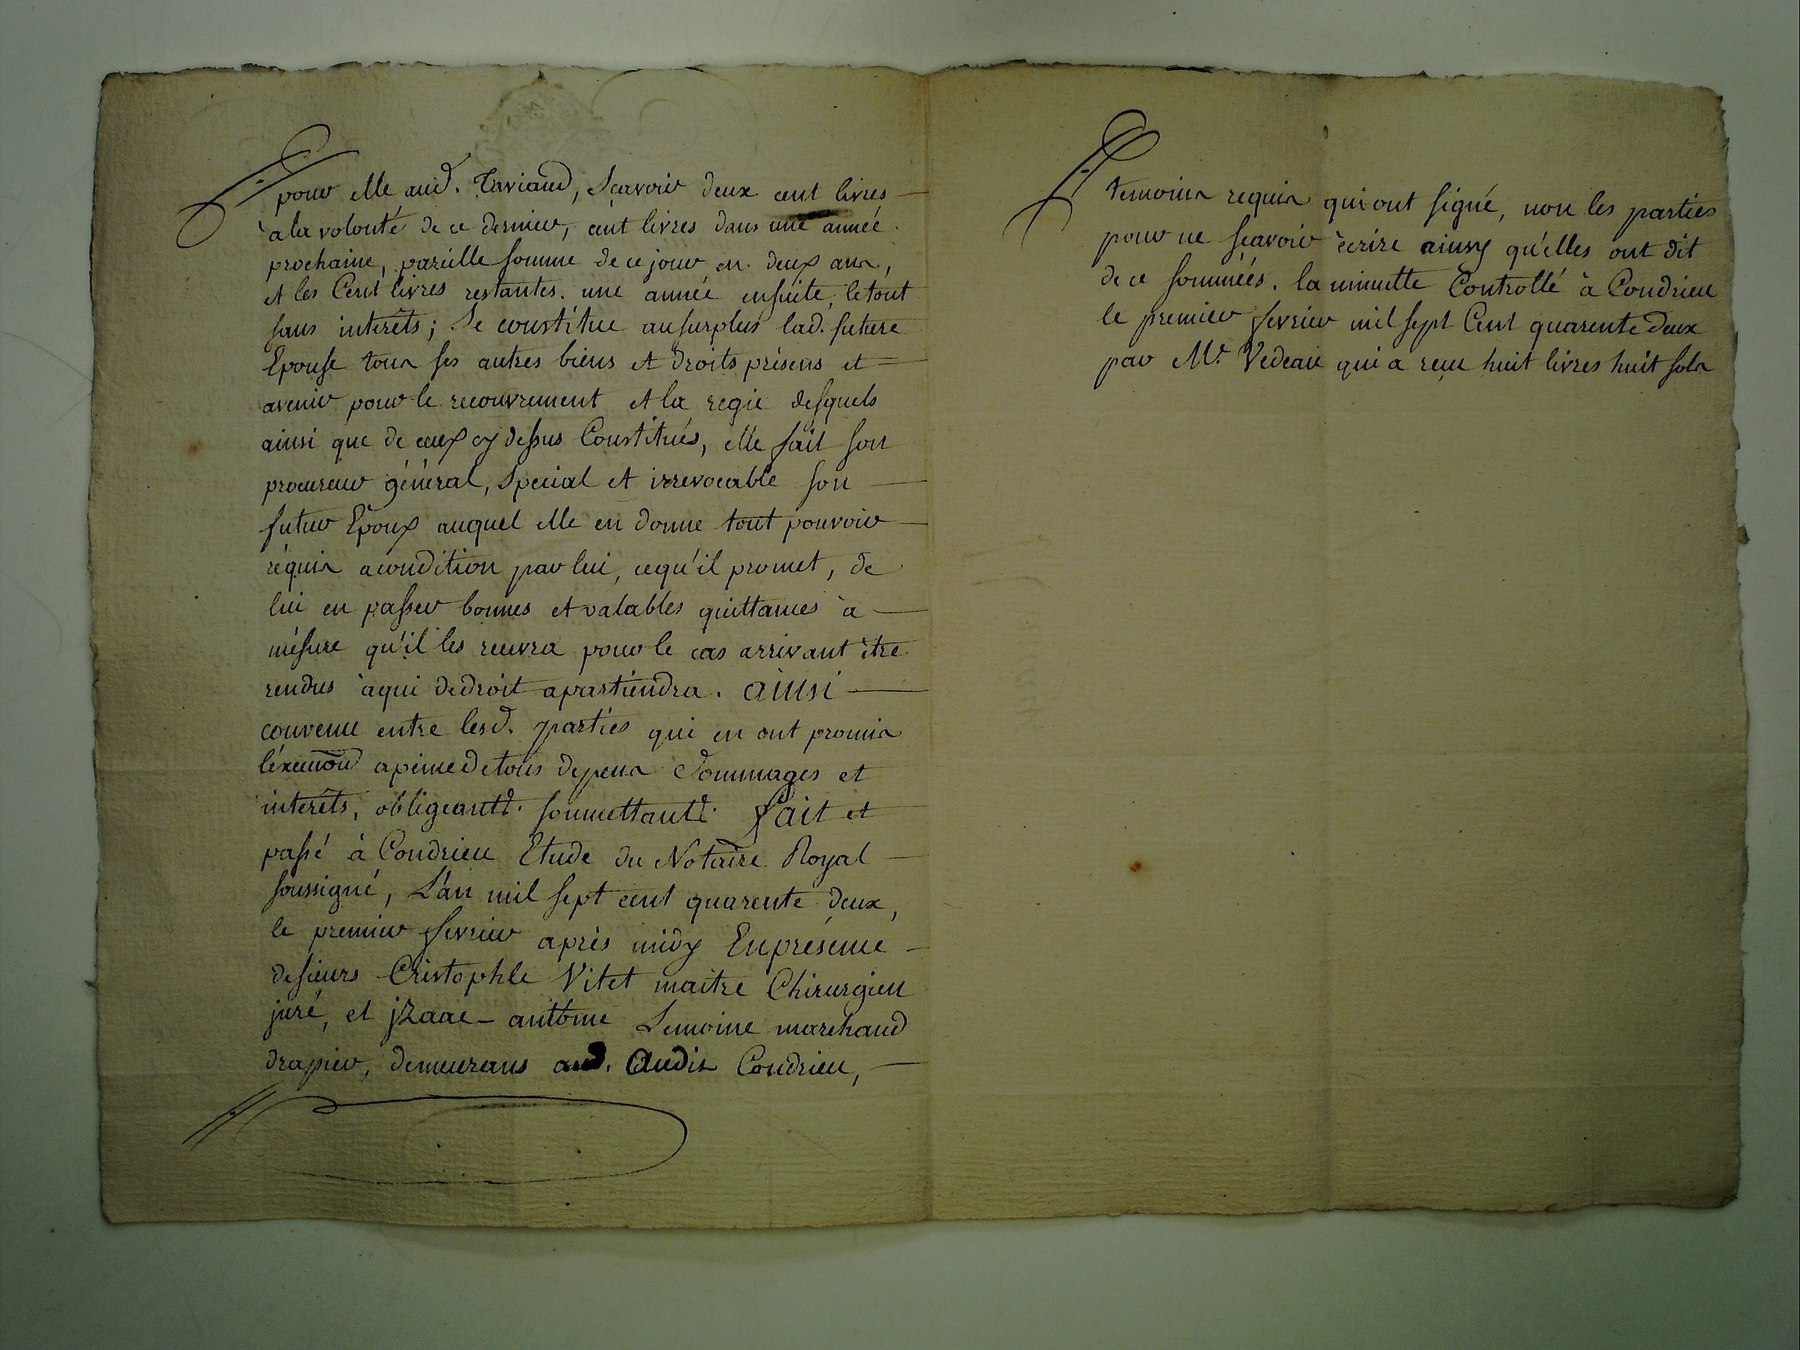 pour elle aud. Taviaud, Sçavoir deux cent livres
à la volonté de ce dernier, cent livres dans une année
prochaine, pareille somme de ce jour en deux ans,
et les Cent livres restantes. une année ensuite, le tout
sans interêts; Se constitue au surplus lad. future
Epouse tous ses autres biens et droits présens et
avenir pour le recouvrement et la regie desquels
ainsi que de ceux cy dessus Constitués, elle fait son
procureur général, Special et irrevocable son
futur Epoux auquel elle en donne tout pouvoir
réquis a condition par lui, ce qu'il promet, de
lui en passer bonnes et valables quittances à
mésure qu'il les recevra pour le cas arrivant être
rendus à qui de droit apartiendra. ainsi
convenu entre lesd. parties qui en ont promis
l'éxécution a peine de tous depens dommages et
interêts, obligeant. soumettant. fait et
passé à Condrieu Etude du Notaire Royal
soussigné, L'an mil sept cent quarente deux,
le premier fevrier après midy En présence
de sieurs Cristophle Vitet maitre Chirurgien
juré, et jzaac-antoine Lemoine marchand
drapier, demeurans aud. Audit Condrieu,
temoins requis qui ont signé, non les parties
pour ne sçavoir écrire ainsy qu'elles ont dit
de ce sommées. la minutte Controllé à Condrieu
le premier fevrier mil sept Cent quarente deux
par Mr. Vedeau qui a reçu huit livres huit sols